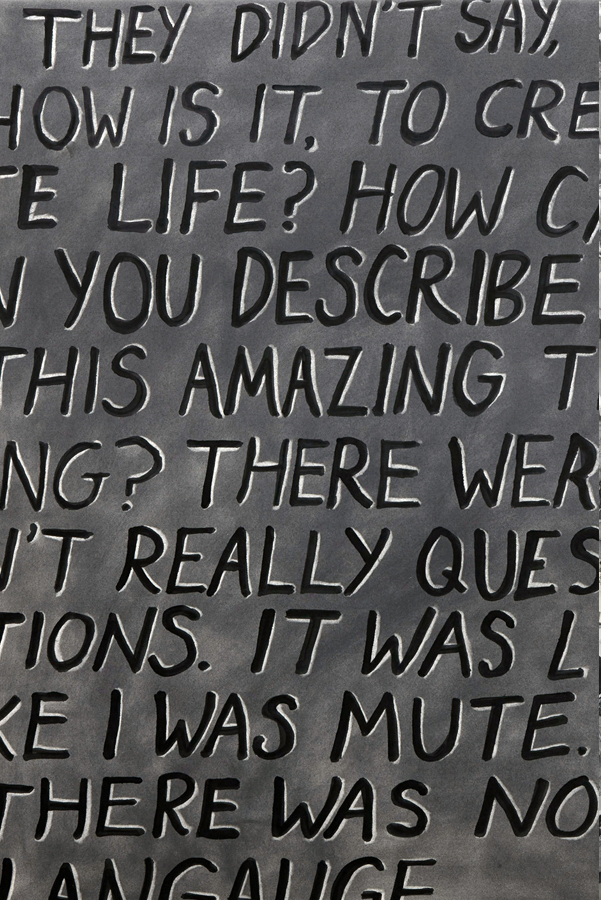 THEY DIDN'T SAY,
HOW IS IT, TO CRE
TE LIFE? HOW CA
N YOU DESCRIBE
THIS AMAZING T
NG? THERE WER
N'T REALLY QUES
TIONS. IT WAS L
KE I WAS MUTE.
THERE WAS NO
LANGAUGE